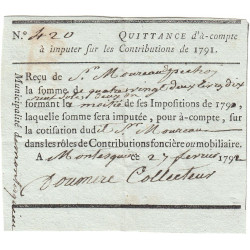 N.º 420 QUITTANCE d'à-compte
à imputer sur les Contributions de 1791.
Municipalité d
Reçu de Sr. Moureau
la somme de quatre vingt deux livres dix
formant la moitié de ses Impositions de 1790,
laquelle somme sera imputée, pour à-compte, sur
la cotisation dudit Sr. Moureau
dans les rôles de Contributions foncière ou mobiliaire.
A Montesquieu ce 27 fevrier 1792
Doumere Collecteur